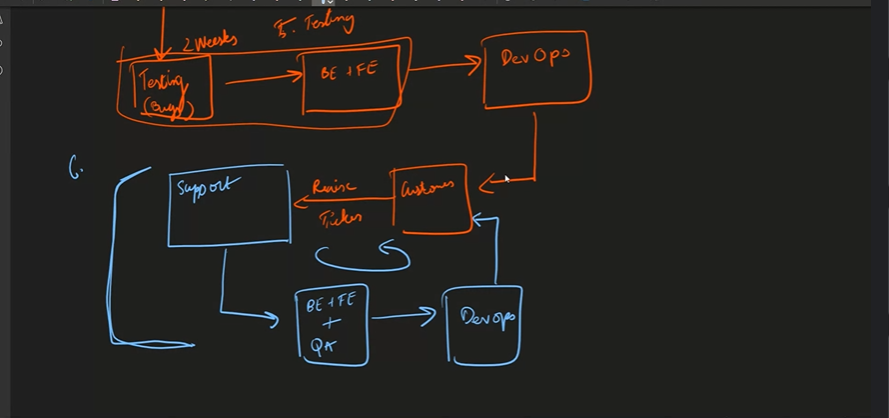 2 Weeks
5. Testing
Testing
(Bugs)
BE + FE
DevOps
6.
Support
Raise
Ticket
Customer
BE + FE
+
QA
Devops